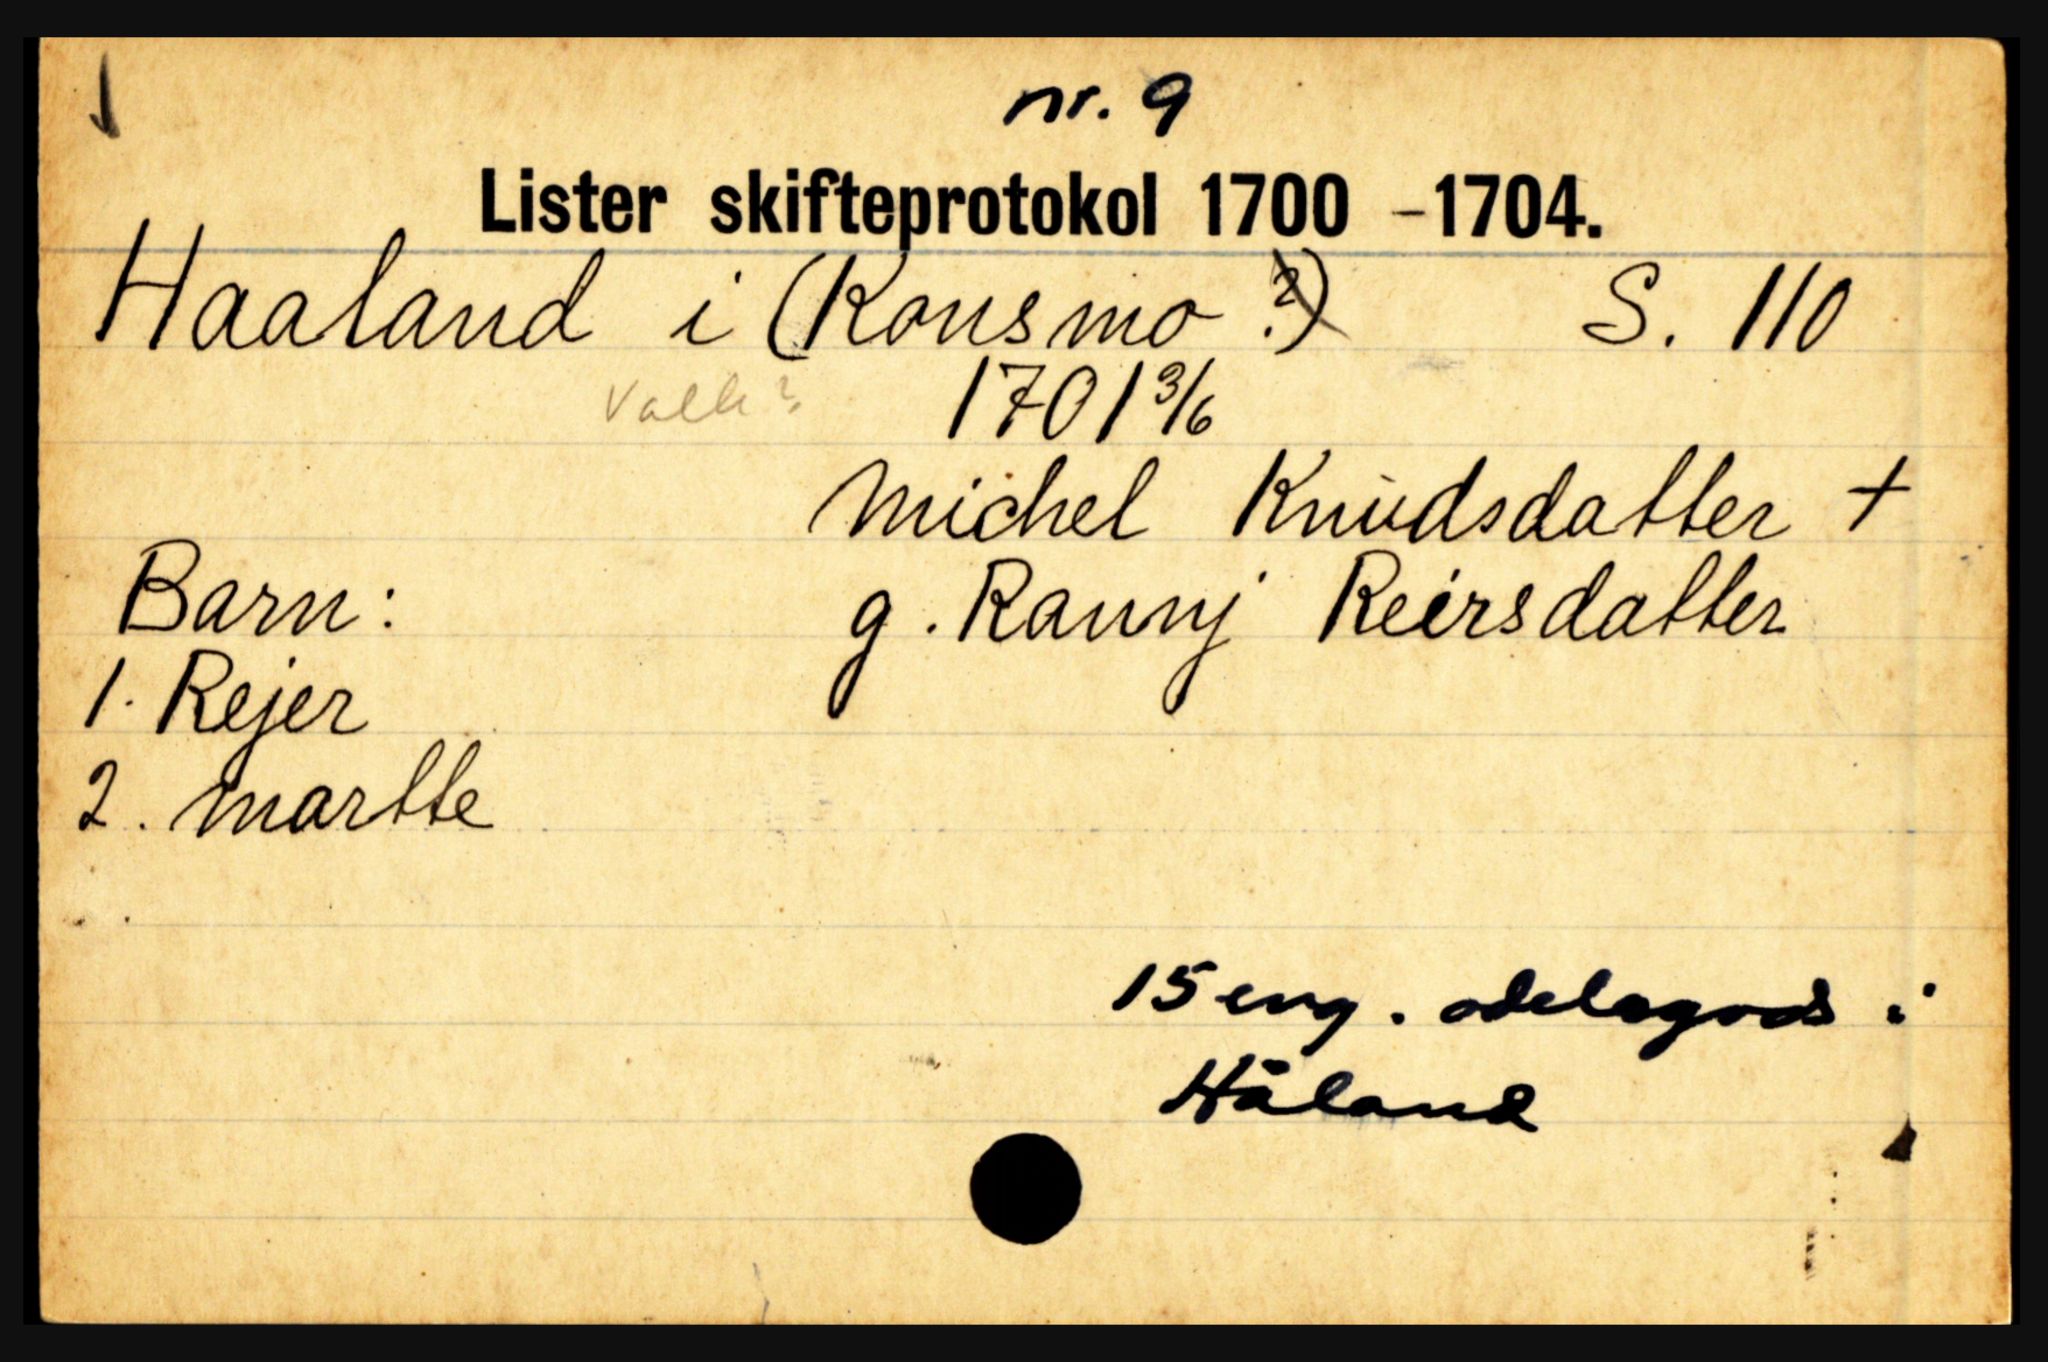 nr. 9
Lister skifteprotokol 1700 -1704.
Haaland i (Konsmo ?) S. 110
Valle? 1701 3/6
Michel Knudsdatter +
Barn: g. Rannj Reirsdatter
1. Rejer
2. Martte
15 eng. odelsgods i
Håland